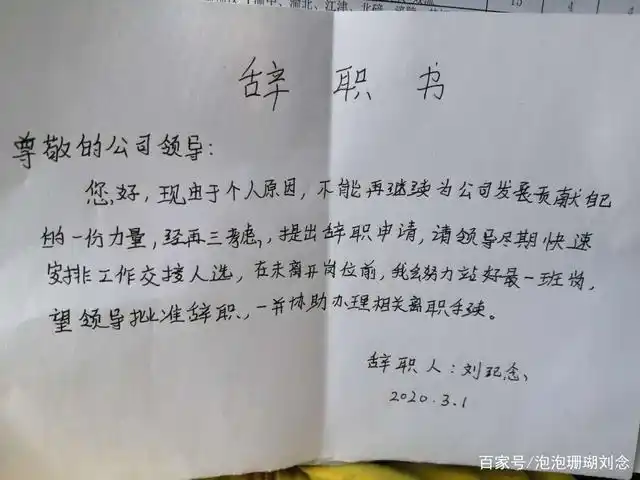 辞职书
尊敬的公司领导:
您好,现由于个人原因,不能再继续为公司发展贡献自己
的一份力量,经再三考虑,提出辞职申请,请领导尽期快速
安排工作交接人选,在未离开岗位前,我会努力站好最一班岗,
望领导批准辞职,一并协助办理相关离职手续。
辞职人:刘
2020.3.1
百家号/泡泡珊瑚刘念